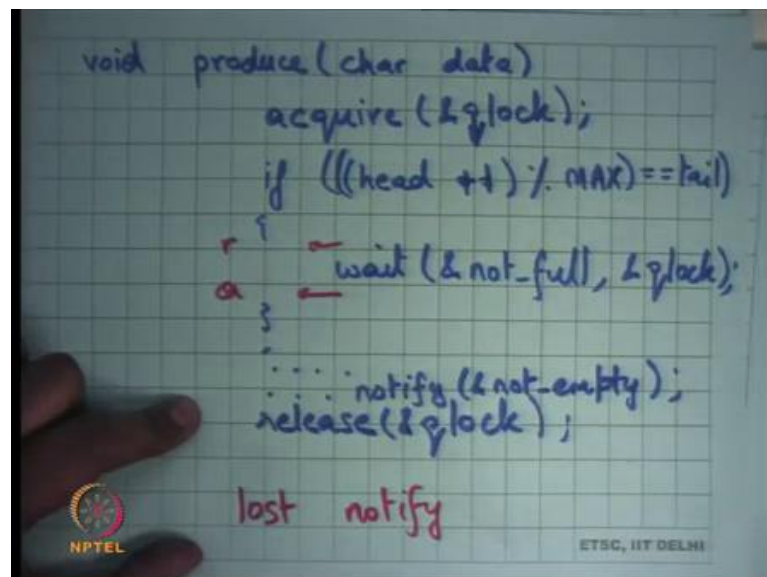 void produce(char data)
acquire(&qlock);
if (((head ++) % MAX)==tail)
{
r
wait (&not_full, &qlock);
a
}
.
. . . . notify(&not-empty);
. . .
release(&qlock);
lost notify
NPTEL
ETSC, IIT DELHI